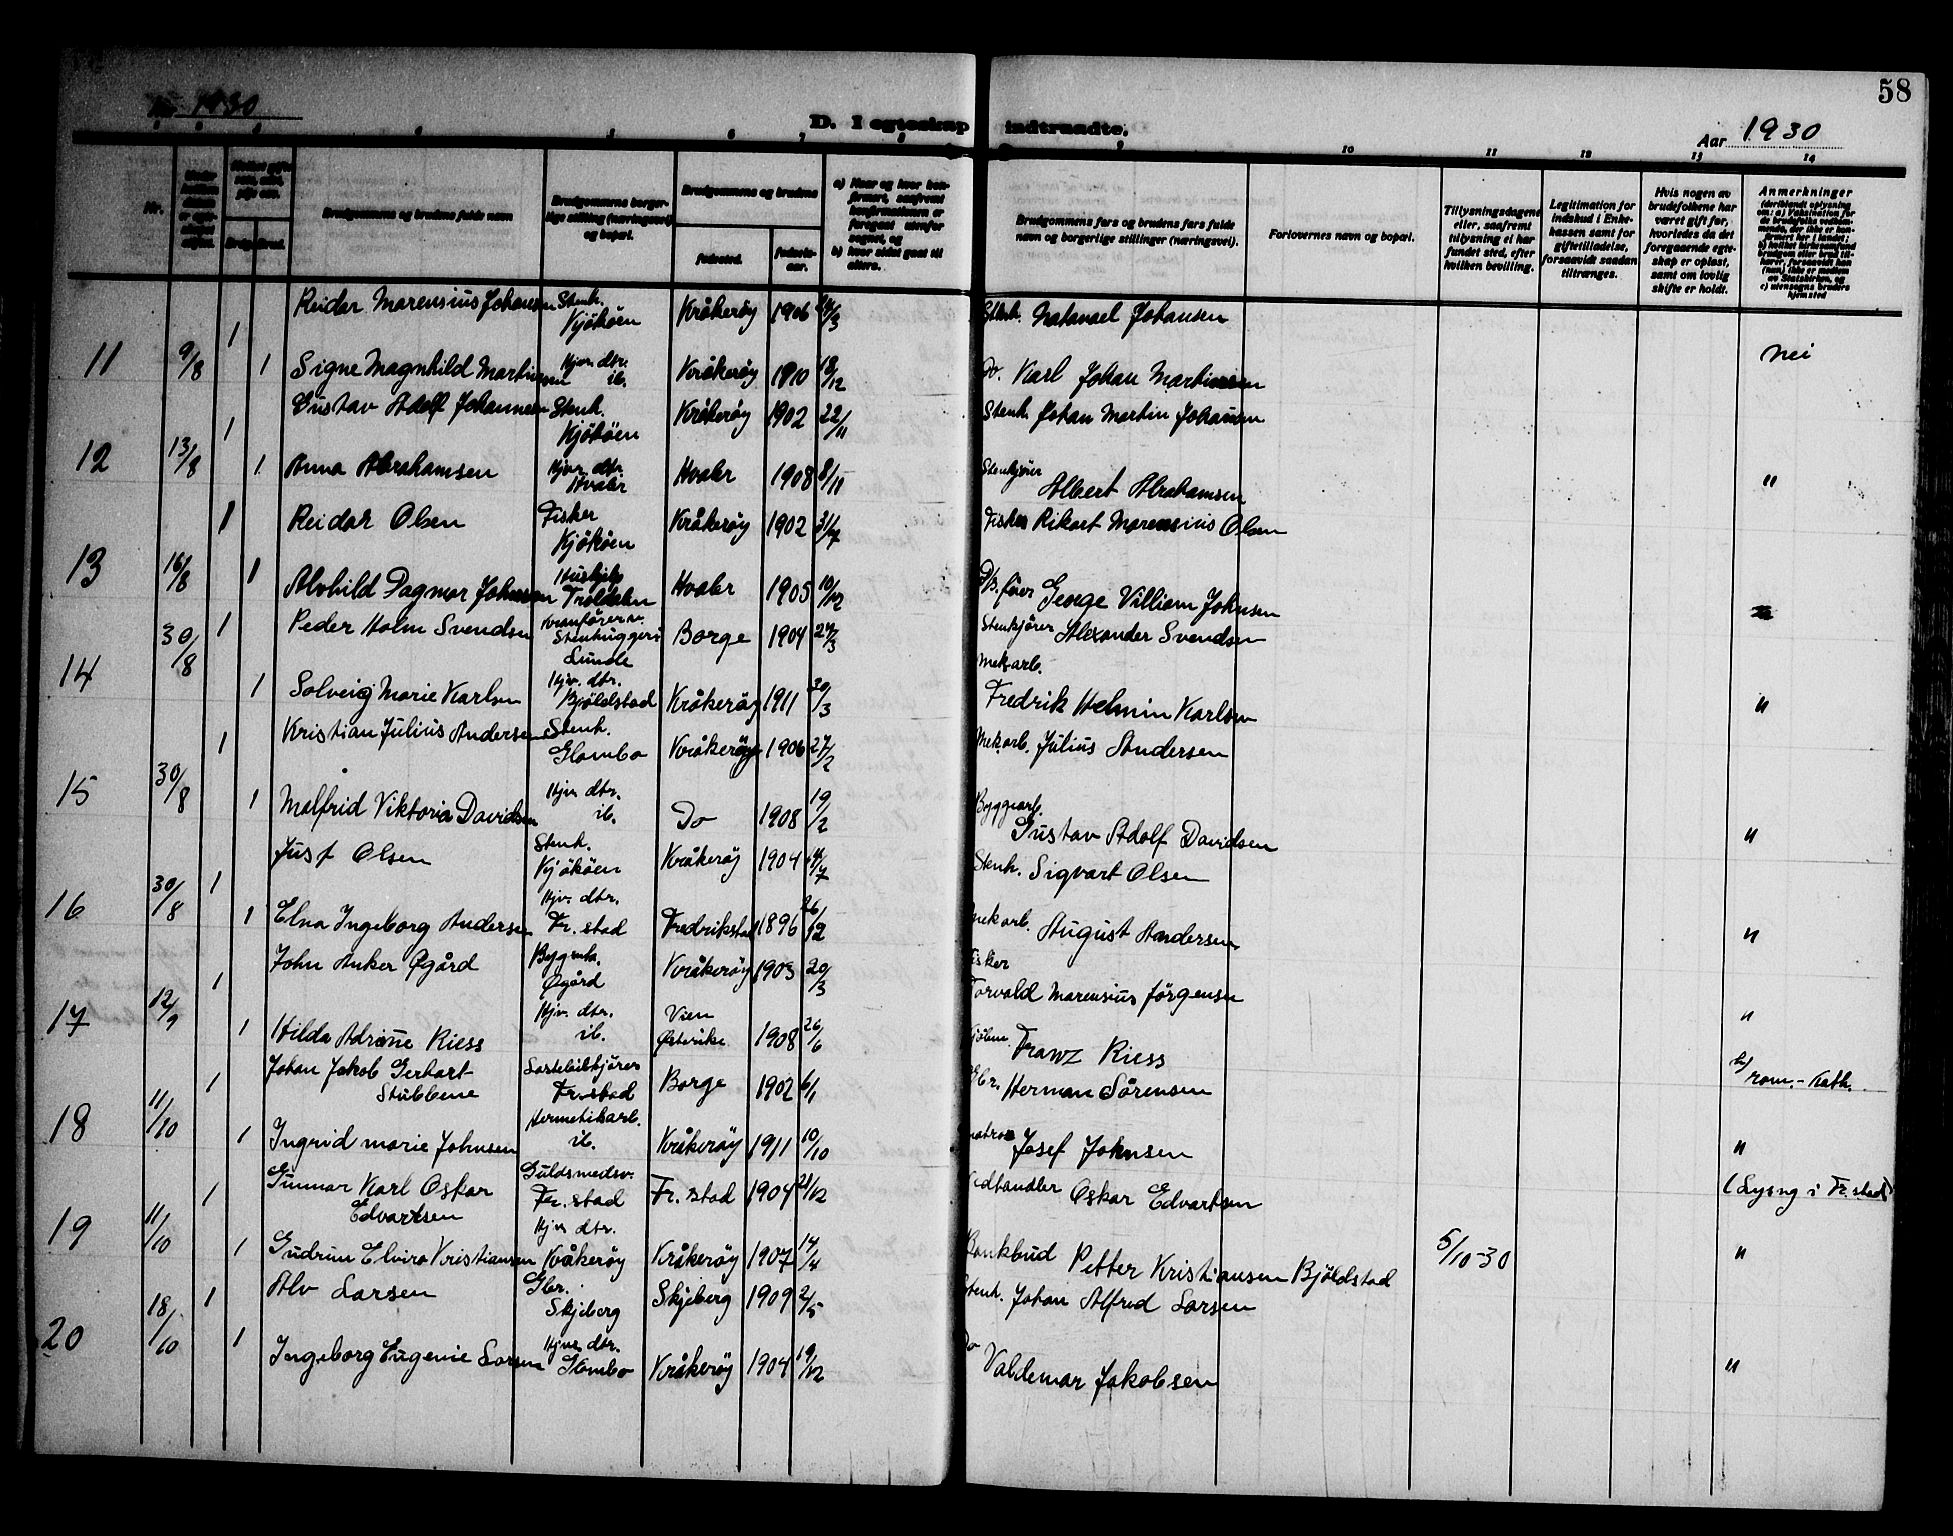 58
1930
D. I egteskap indtraadte.
Aar 1930
Nr.
Brudgommens og brudens fulde navn
Brudgommens borgerlige stilling (næringsvei) og bopæl.
Brudgommens og brudens
fødested.
fødselsaar.
Brudgommens fars og brudens fars fulde navn og borgerlige stillinger (næringsvei).
Forlovernes navn og bopæl.
Tillysningsdagene eller, saafremt tillysning ei har fundet sted, efter hvilken bevilling.
Legitimation for indskud i Enkekassen samt for giftetilladelse, forsaavidt saadan tiltrænges.
Hvis nogen av brudefolkene har været gift før, hvorledes da det foregaaende egteskap er opløst, samt om lovlig skifte er holdt.
Anmerkninger
10 11 12 13 14
1 Reidar Marensius Johansen Stenh. Kjøkøen Kråkerøy 1906 Stenh. Natanael Johansen
11 9/8 1 Signe Magnhild Martinsen Hjv. dtr. ib. Kråkerøy 1910 18/12 Do. Karl Johan Martinsen nei
1 Gustav Adolf Johannesen Stenh. Kjøkøen Kråkerøy 1902 22/11 Stenh. Johan Martin Johansen
12 13/8 1 Anna Abrahamsen Hjv. dtr. Hvaler Hvaler 1908 8/11 Stenkjører Albert Abrahamsen "
1 Reidar Olsen Fisker Kjøkøen Kråkerøy 1902 Fisker Rikart Marensius Olsen
13 16/8 1 Alvhild Dagmar Johnsen Hushjelp Troldalen Hvaler 1905 10/12 George Villiam Johnsen
1 Peder Holm Svendsen Stenhuggeri Lunde Borge 1904 Stenkjører Alexander Svendsen
14 30/8 1 Solveig Marie Karlsen Hjv. dtr. Bjøldstad Kråkerøy 1911 30/3 Mek.arb. Fredrik Helmin Karlsen "
1 Kristian Julius Andersen Stenh. Glombo Kråkerøy 1906 27/2 Mek.arb. Julius Andersen
15 30/8 1 Malfrid Viktoria Davidsen Hjv. dtr. ib. Do 1908 19/2 Byggearb. Gustav Adolf Davidsen "
1 Just Olsen Stenh. Kjøkøen Kråkerøy 1904 Stenh. Sigvart Olsen
16 30/8 1 Elna Ingeborg Andersen Hjv. dtr. Fr.stad Fredrikstad 1896 26/12 Mek.arb. August Andersen "
1 John Anker Øgård Øgård Kråkerøy 1903 20/3 Torvald Marensius Jørgensen
17 12/9 1 Hilda Adrine Riess Hjv. dtr. ib. Vien Østerike 1908 26/6 Franz Riess "
1 Johan Jakob Gerhart Stubbene Lastebilkjører Fr.stad Borge 1902 6/1 Gbr. Herman Sørensen b/ rom.-kath.
18 11/10 1 Ingrid Marie Johnsen Hermetikarb. ib. Kråkerøy 1911 10/10 Matros Josef Johnsen "
1 Gunnar Karl Oskar Edvartsen Guldsmedsv. Fr.stad Fr.stad 1904 21/12 Vedhandler Oskar Edvartsen (Lysng i Fr.stad)
19 11/10 1 Gudrun Elvira Kristiansen Hjv. dtr. Kråkerøy Kråkerøy 1907 14/4 Bankbud Petter Kristiansen Bjøldstad 5/10-30 "
1 Alv Larsen Gbr. Skjeberg Skjeberg 1909 2/5 Stenh. Johan Alfred Larsen
20 18/10 1 Ingeborg Eugenie Larsen Hjv. dtr. Glombo Kråkerøy 1904 19/12 Do Valdemar Jakobsen "